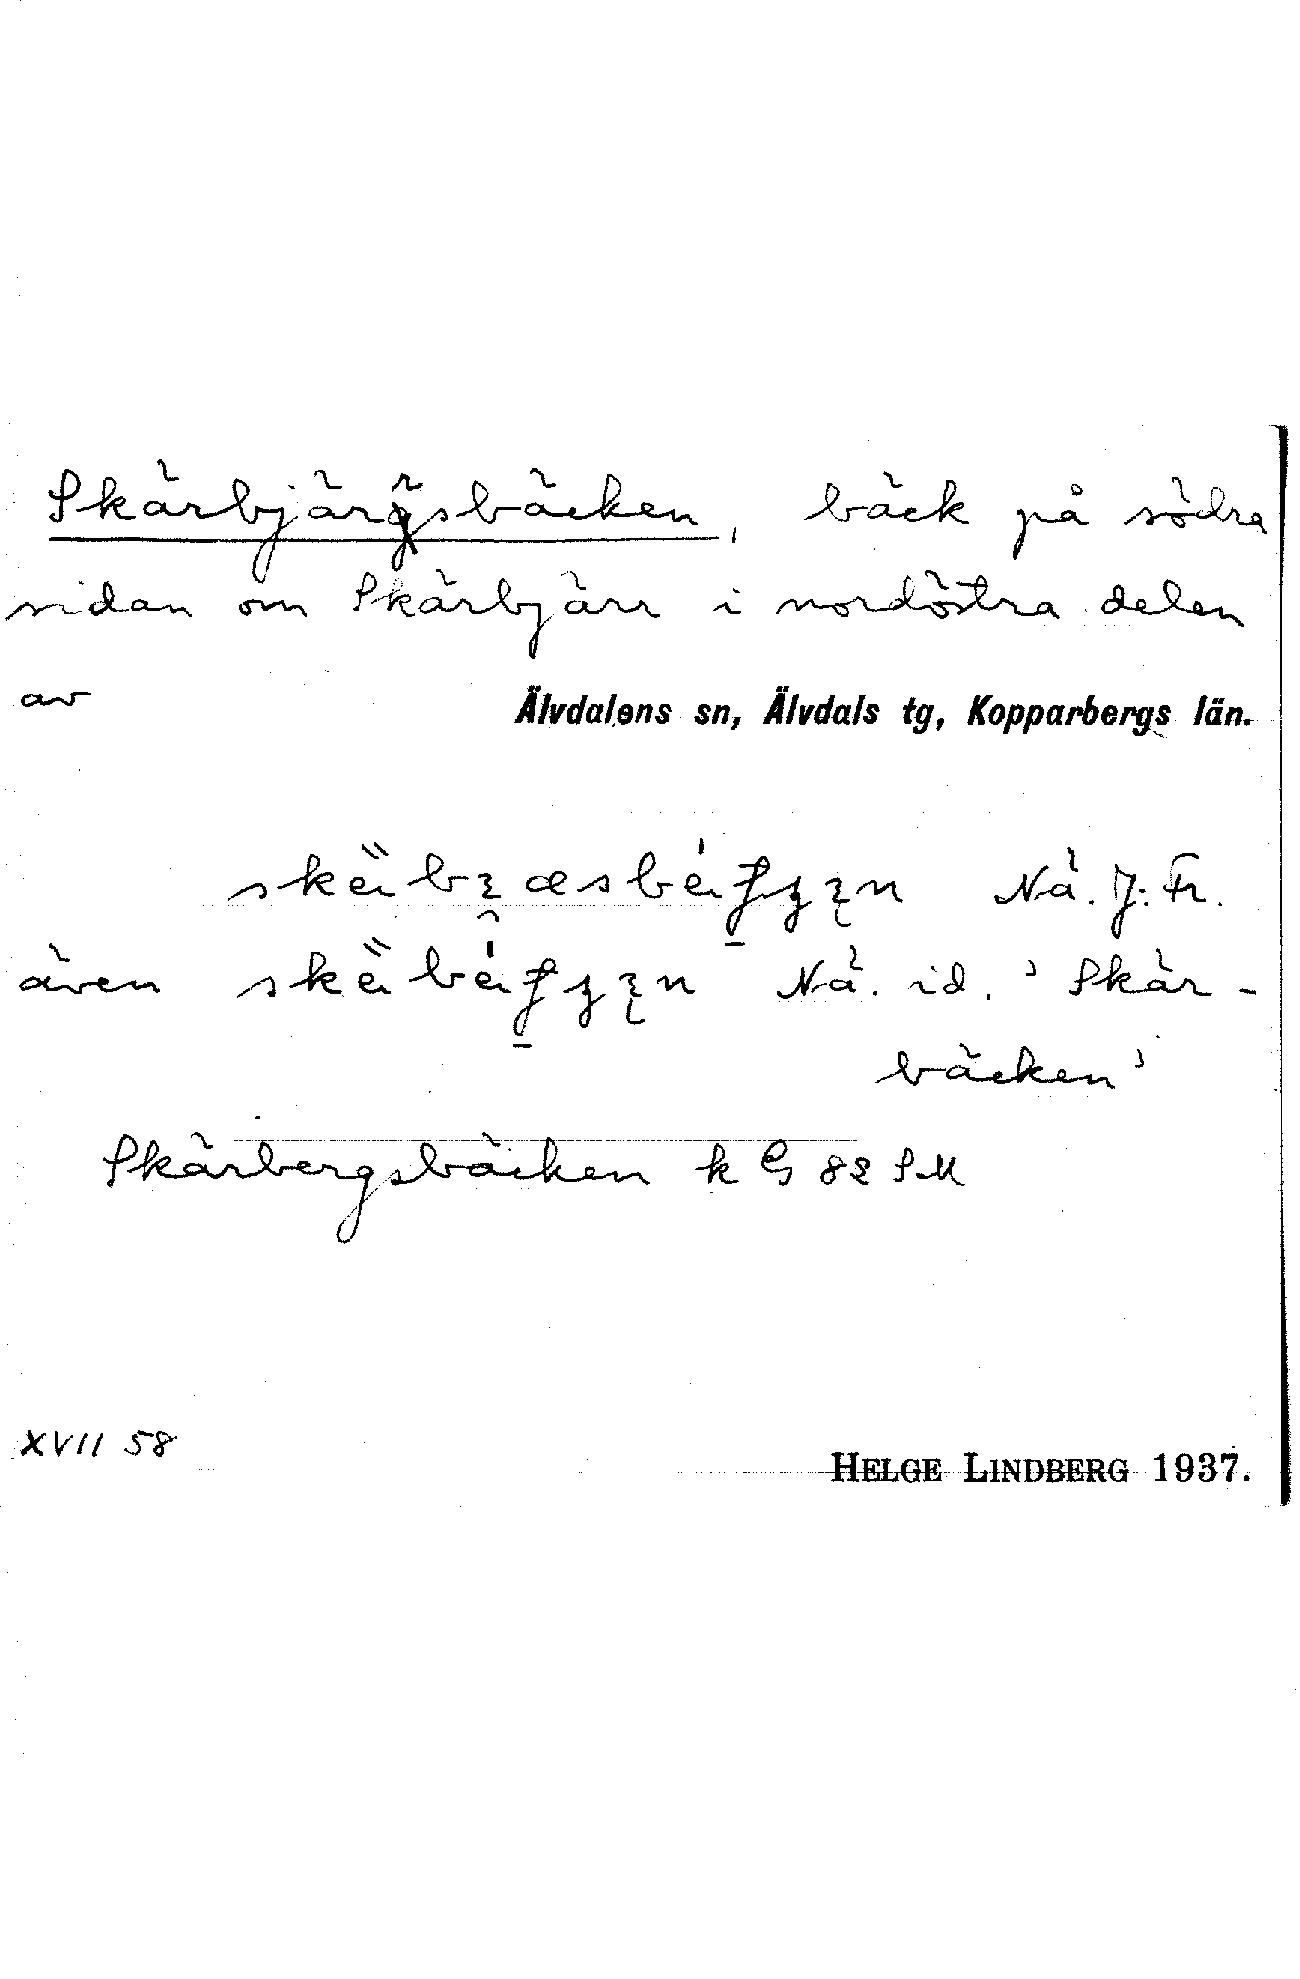 Skärbjärsbäcken, bäck på södra
sidan om Skärbjärr i nordöstra delen
av Älvdalens sn, Älvdals tg, Kopparbergs län.
Nä. J. Fr.
även Nä. id. 'Skär-
bäcken'
Skärbergsbäcken k G 82 SM
XVII 58
HELGE LINDBERG 1937.